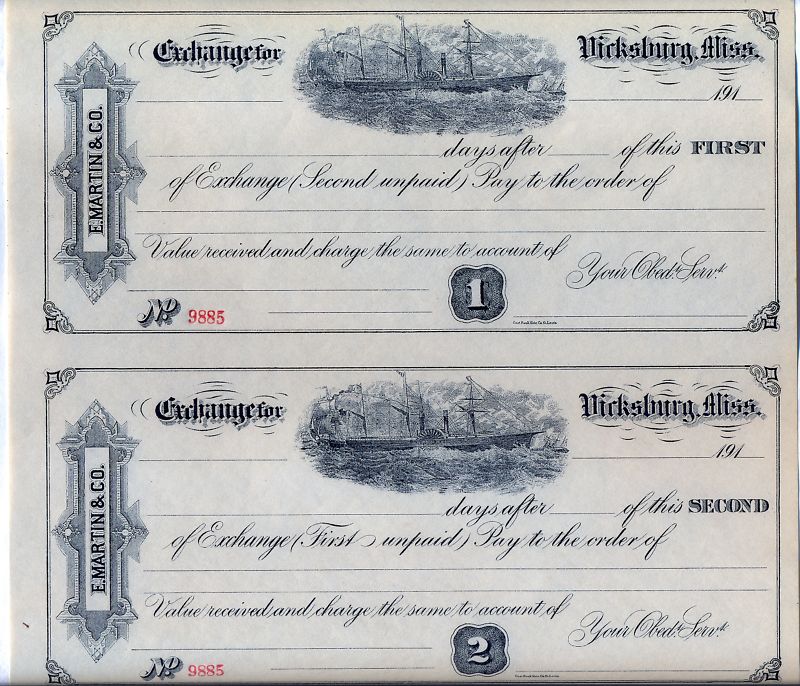 Exchange for
Vicksburg, Miss.
191
E. MARTIN & CO.
days after of this FIRST
of Exchange (Second unpaid) Pay to the order of
Value received and charge the same to account of
Your Obed.t Serv.t
1
No 9885
Exchange for
Vicksburg, Miss.
191
E. MARTIN & CO.
days after of this SECOND
of Exchange (First unpaid) Pay to the order of
Value received and charge the same to account of
Your Obed.t Serv.t
2
No 9885